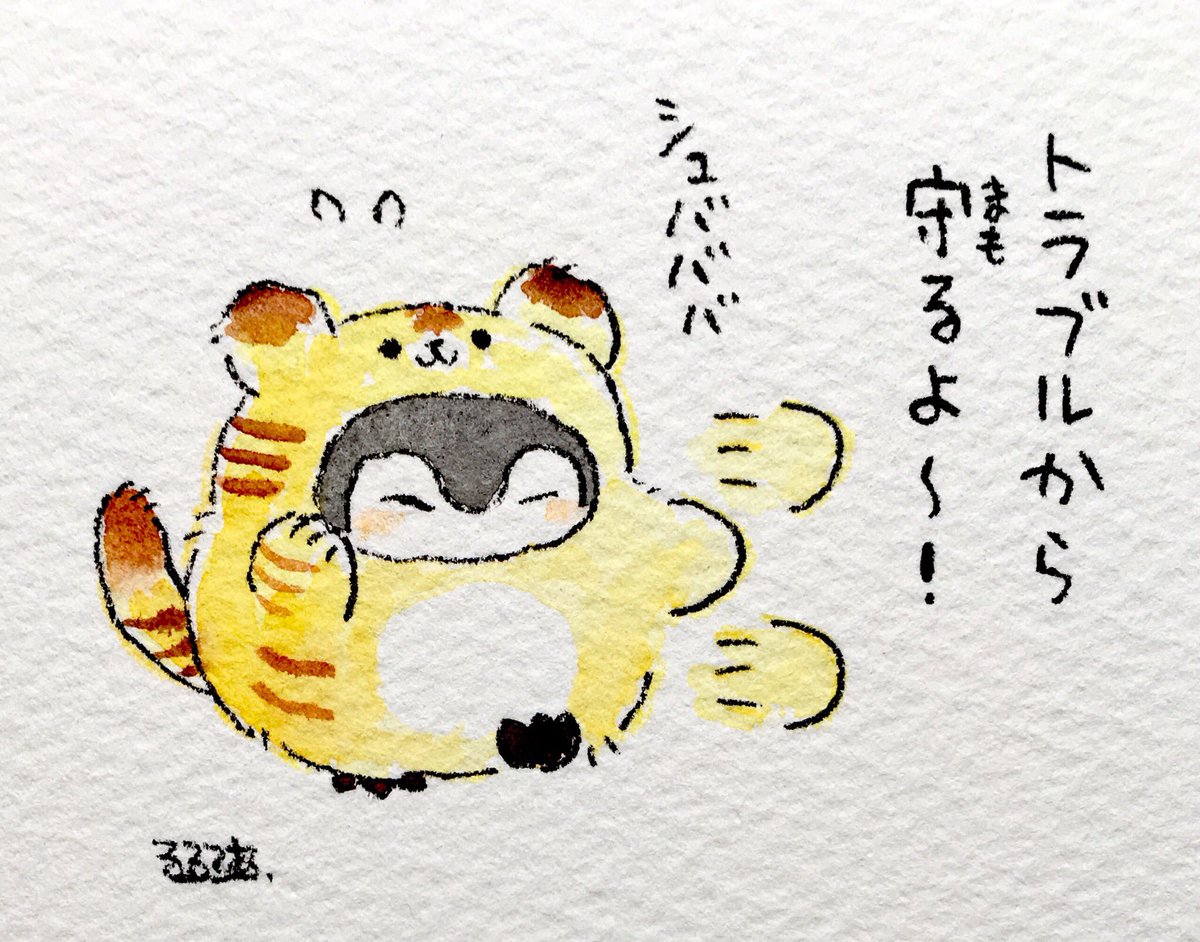 トラブルから
守るよ〜！
まも
シュバババ
るるてあ